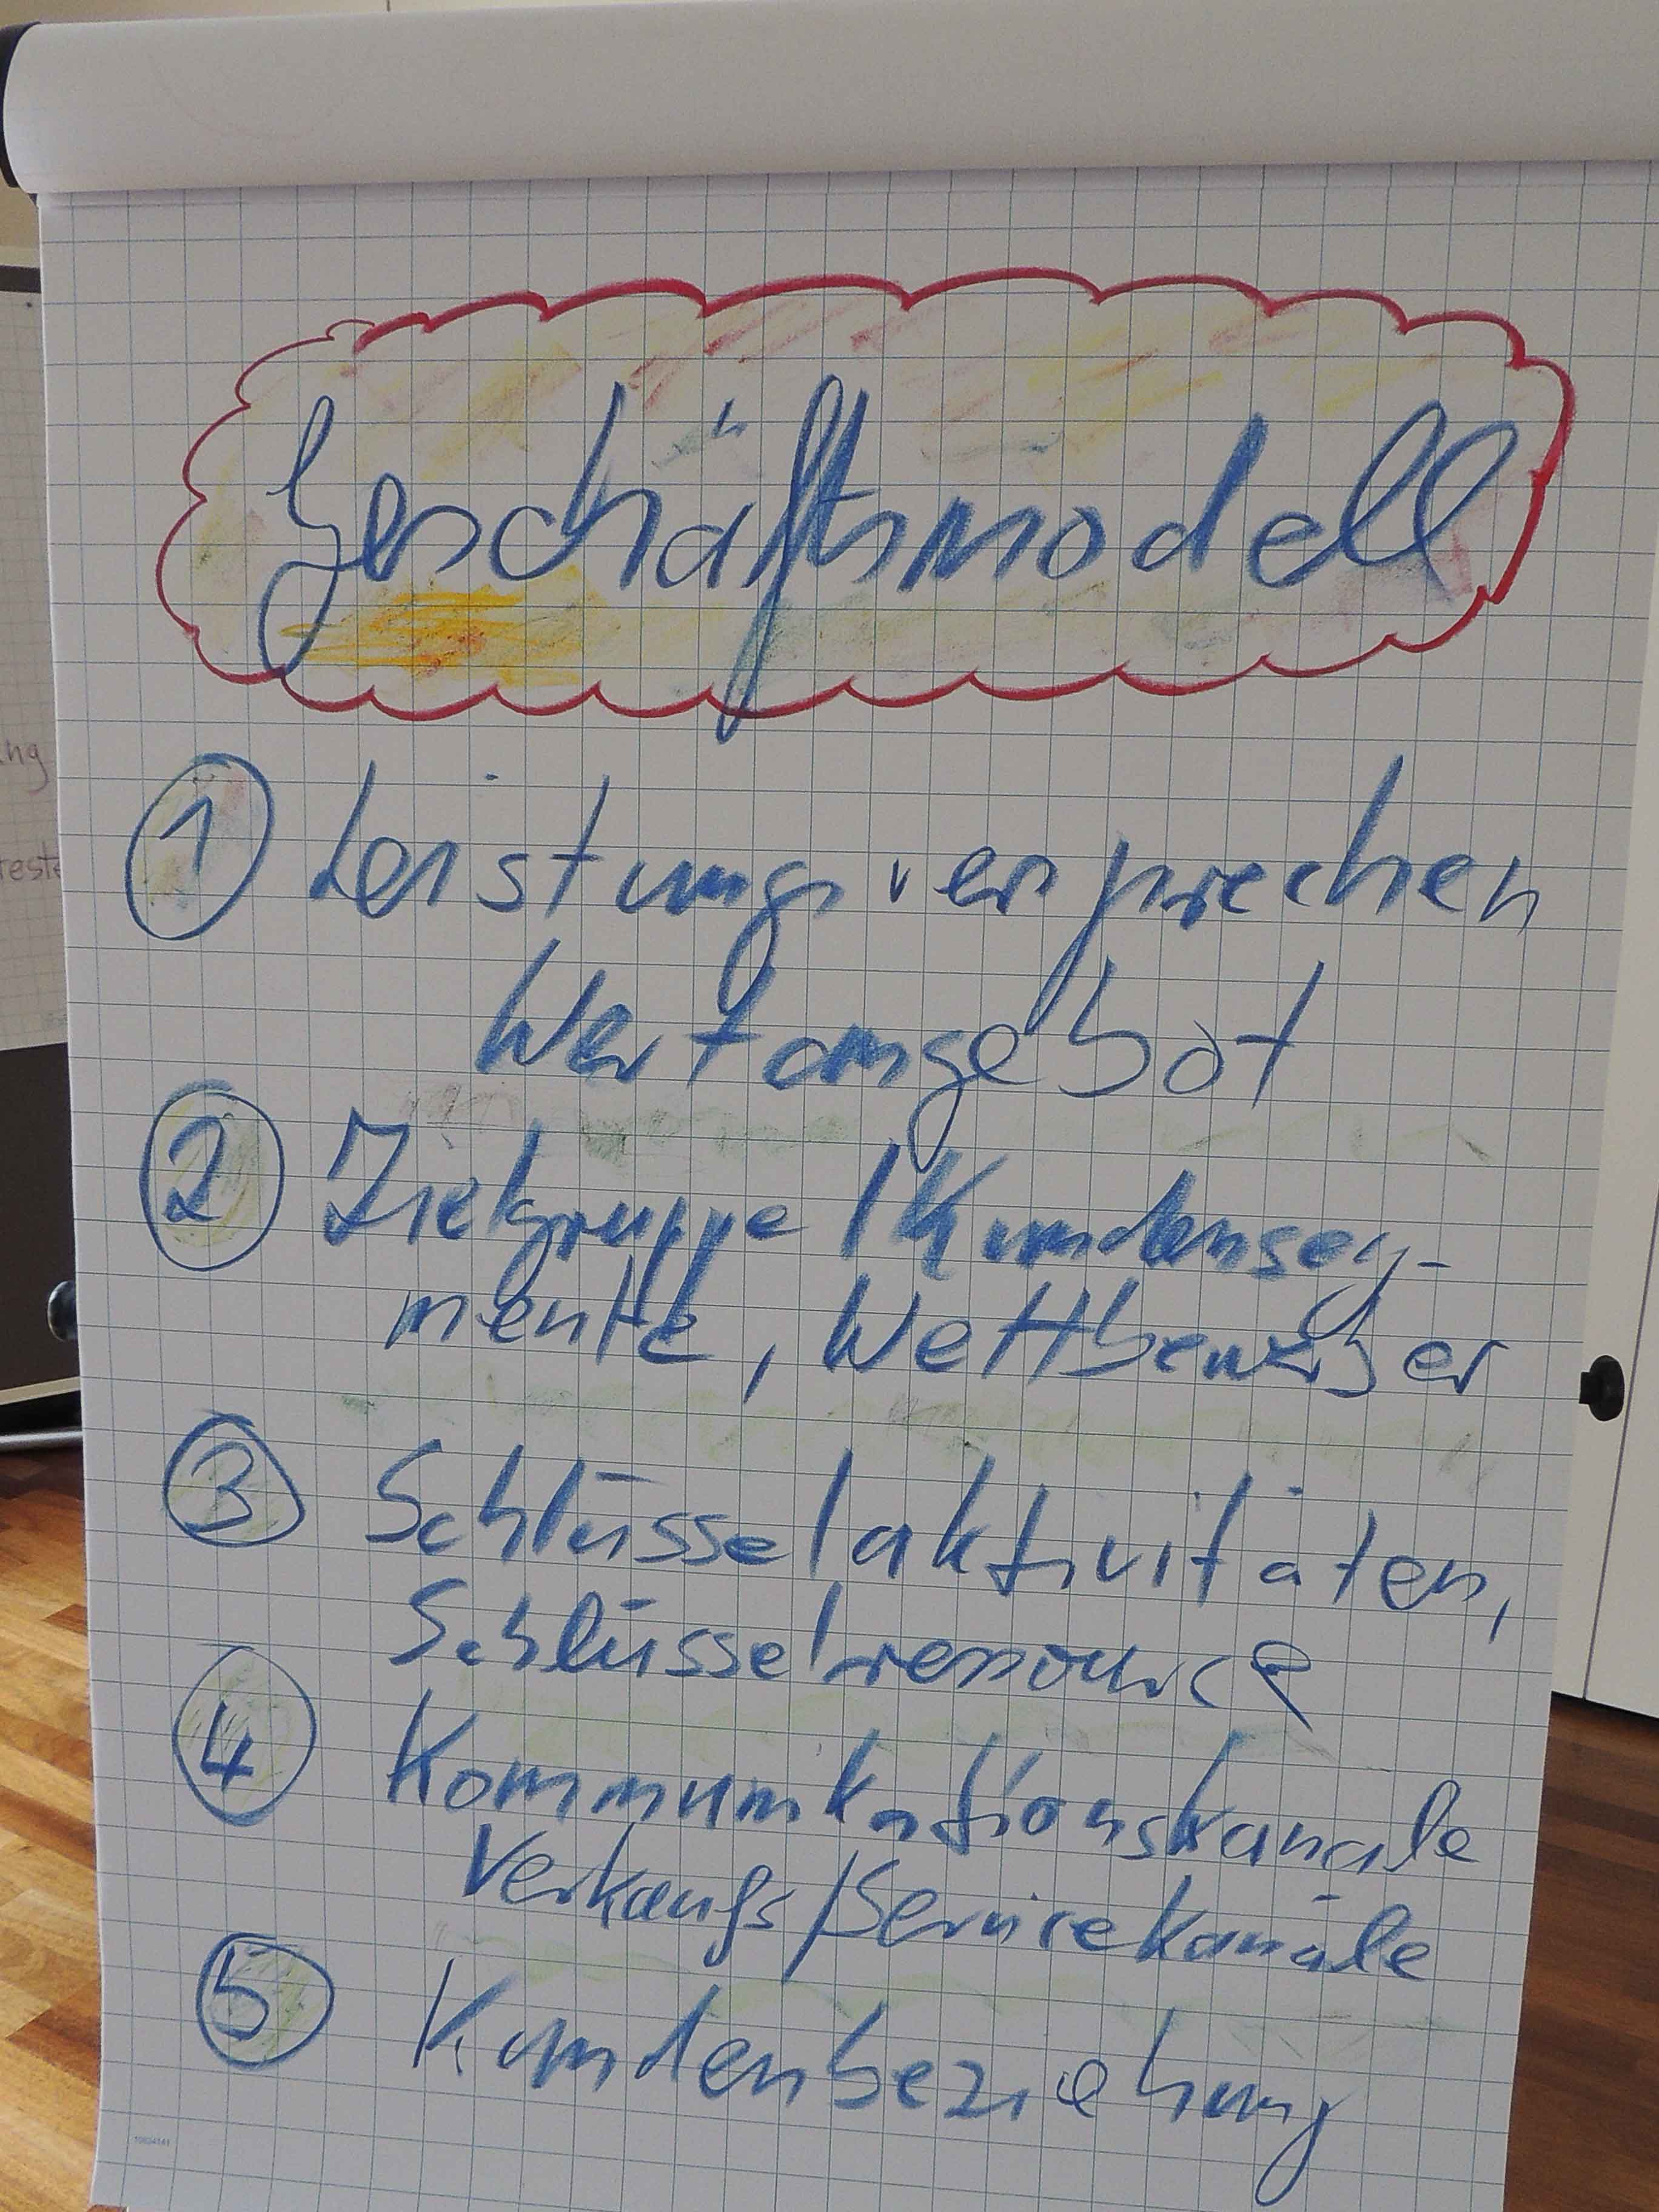 Geschäftsmodell
1 Leistungsversprechen
Wertangebot
2 Zielgruppe / Kundenseg-
mente, Wettbewerber
3 Schlüsselaktivitäten,
Schlüsselressource
4 Kommunikationskanäle
Verkaufs/Servicekanäle
5 Kundenbeziehung